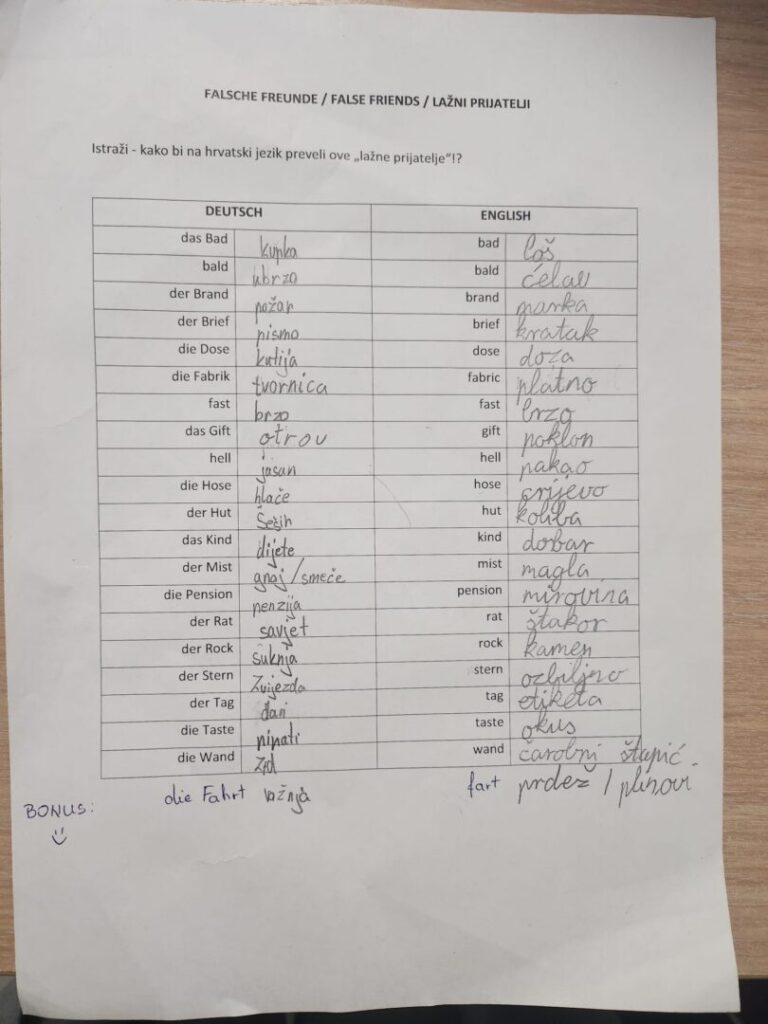 FALSCHE FREUNDE / FALSE FRIENDS / LAŽNI PRIJATELJI
Istraži - kako bi na hrvatski jezik preveli ove „lažne prijatelje“!?
DEUTSCH ENGLISH
das Bad kupka bad loš
bald ubrzo bald ćelav
der Brand požar brand marka
der Brief pismo brief kratak
die Dose kutija dose doza
die Fabrik tvornica fabric platno
fast brzo fast brzo
das Gift otrov gift poklon
hell jasan hell pakao
die Hose hlače hose crijevo
der Hut šešir hut koliba
das Kind dijete kind dobar
der Mist gnoj/smeće mist magla
die Pension penzija pension mirovina
der Rat savjet rat štakor
der Rock suknja rock kamen
der Stern Zvijezda stern ozbiljno
der Tag dan tag etiketa
die Taste pipati taste okus
die Wand zid wand čarobni štapić
BONUS: die Fahrt vožnja fart prdež / plinovi